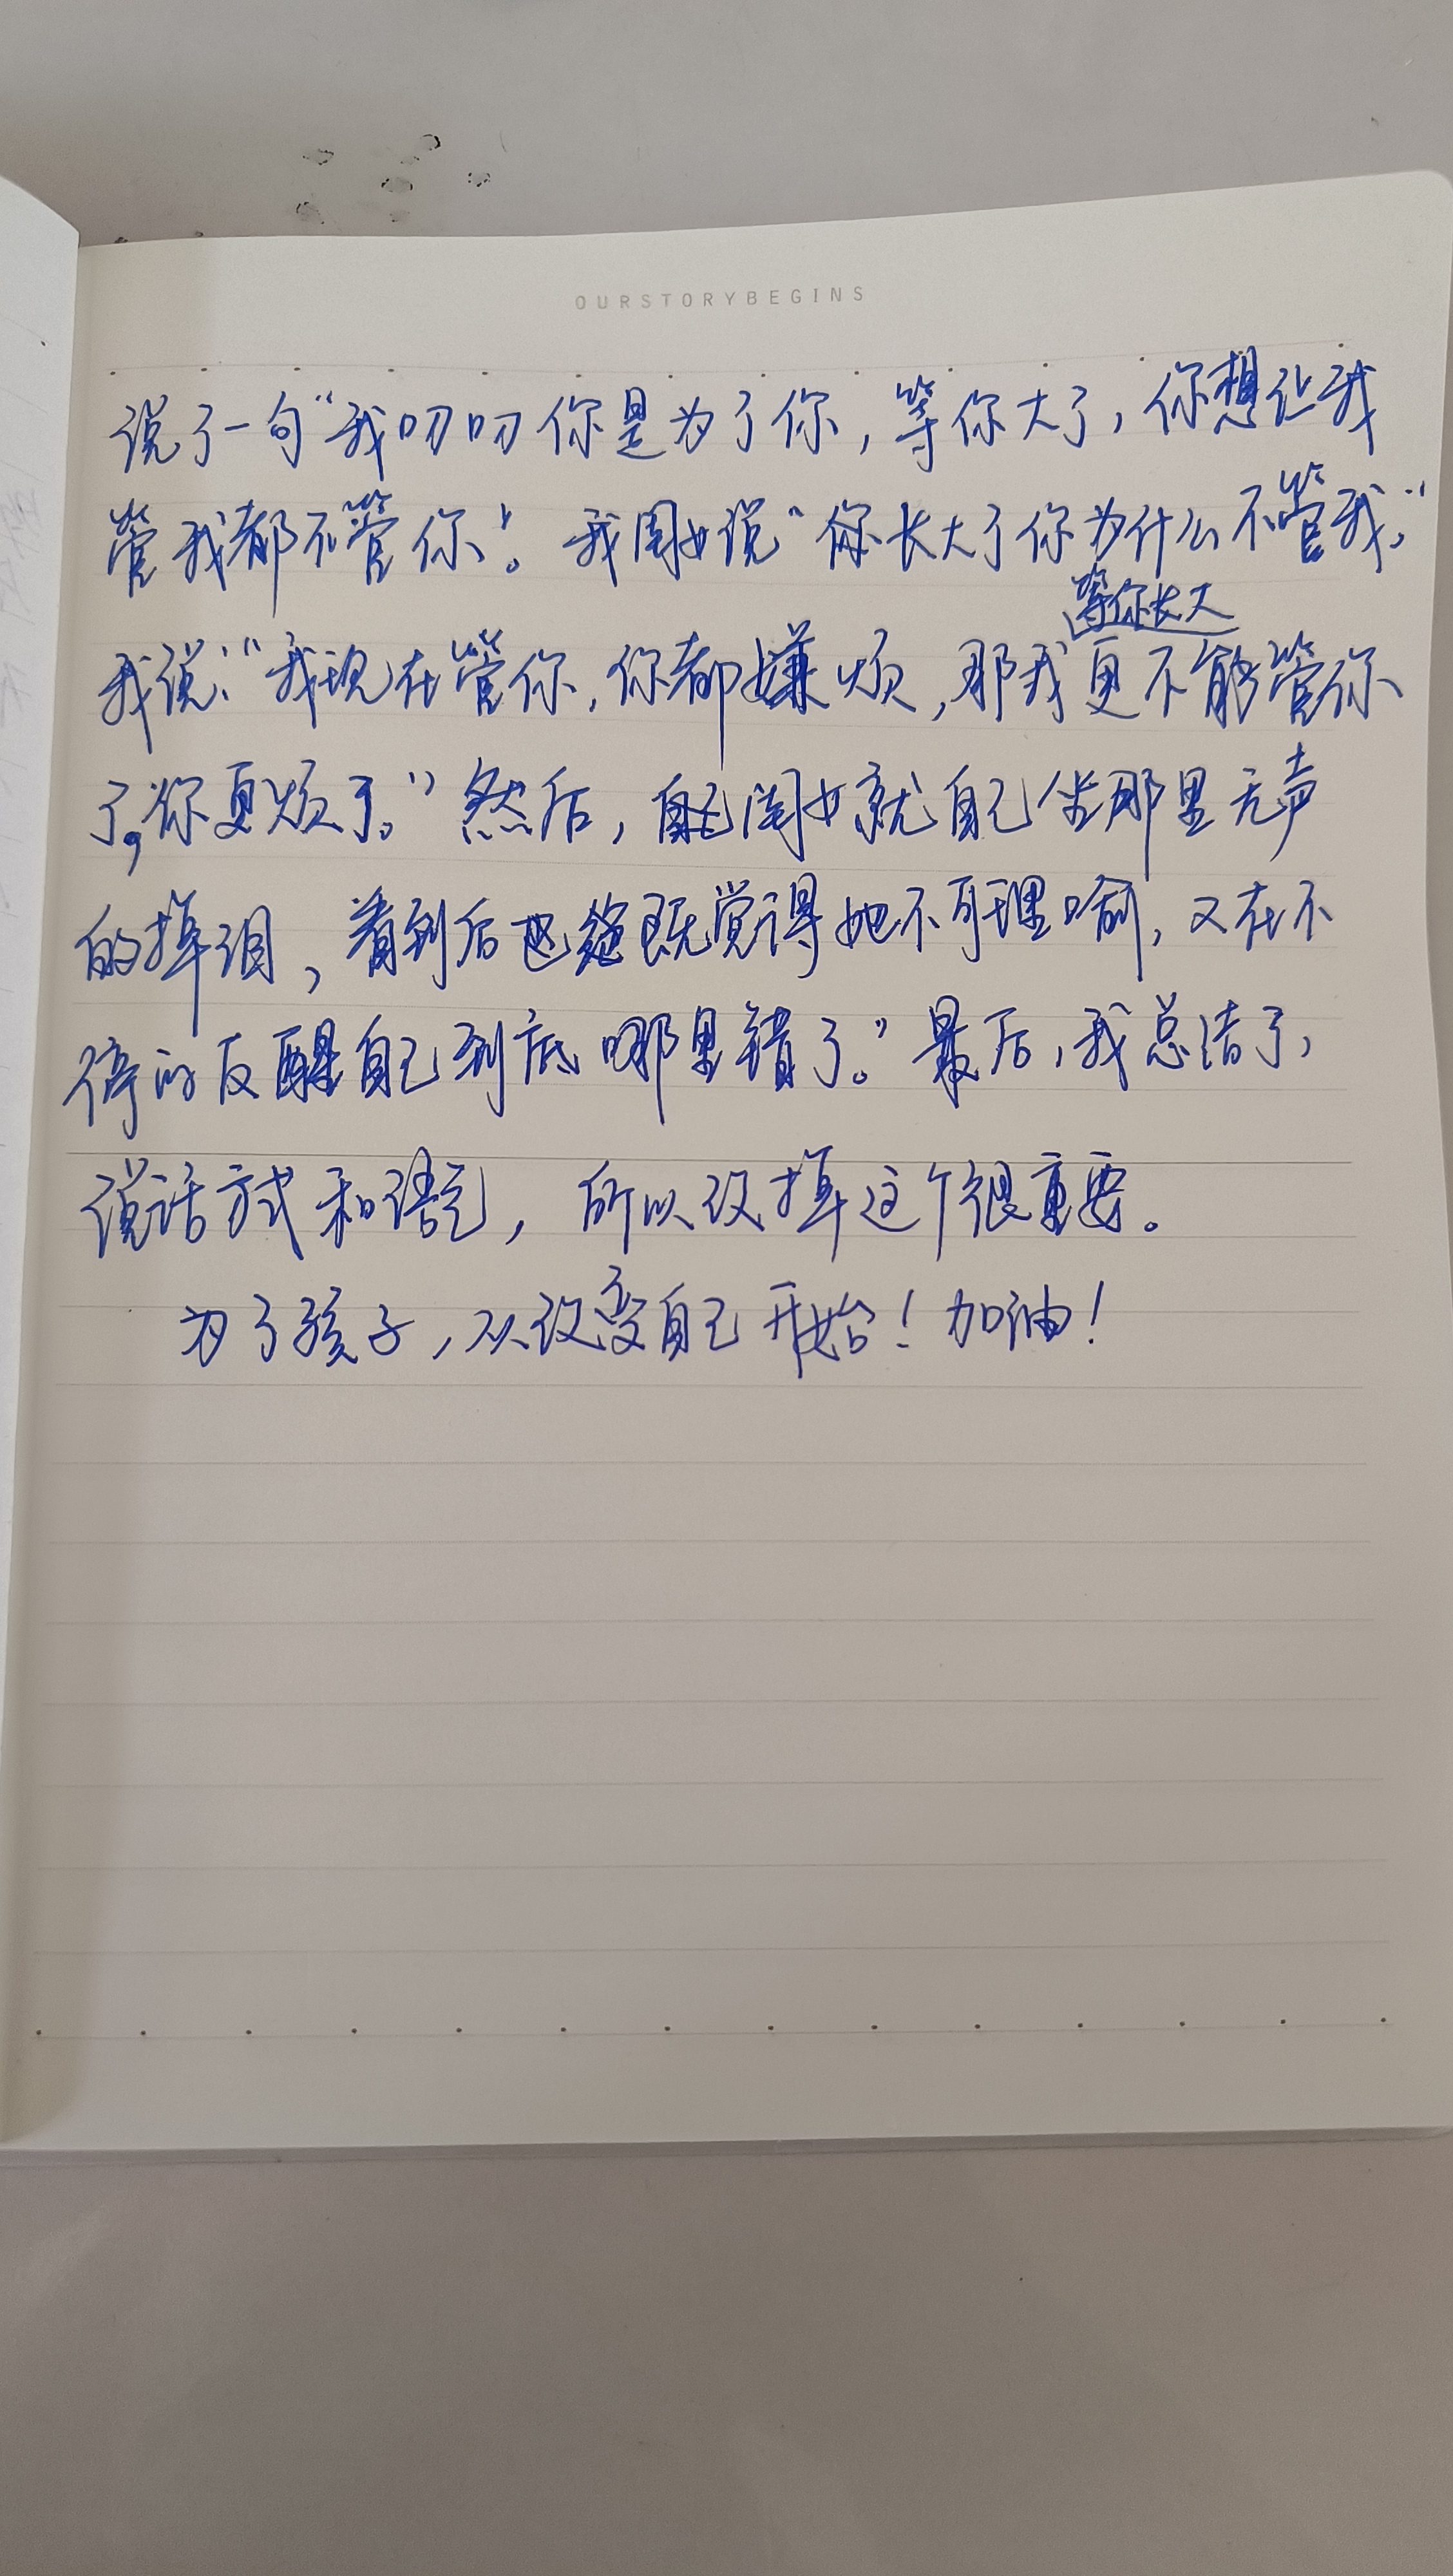 OURSTORYBEGINS
说了一句“我叨叨你是为了你，等你大了，你想让我
管我都不管你！。我闺女说“你长大了你为什么不管我。”
等你长大
我说：“我现在管你，你都嫌烦，那我更不能管你
了，你更烦了。”然后，闺女就自己坐那里无声
的掉泪，看到后既觉得她不可理喻，又在不
停的反醒自己到底哪里错了。”最后，我总结了，
说话方式和语气，所以改掉这个很重要。
为了孩子，从改变自己开始！加油！